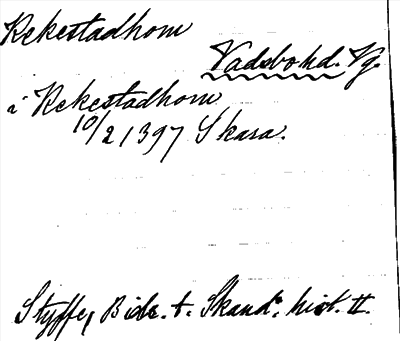 Rekestadhom
Vadsbo hd. Vg.
i Rekestadhom
10/2 1397 Skara.
Styffe, Bidr. t. Skand:s hist. II.